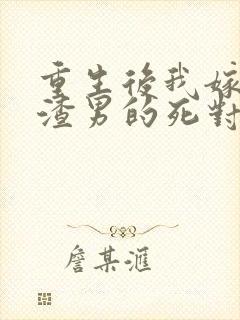 重生後我嫁
渣男的死對
詹某滙